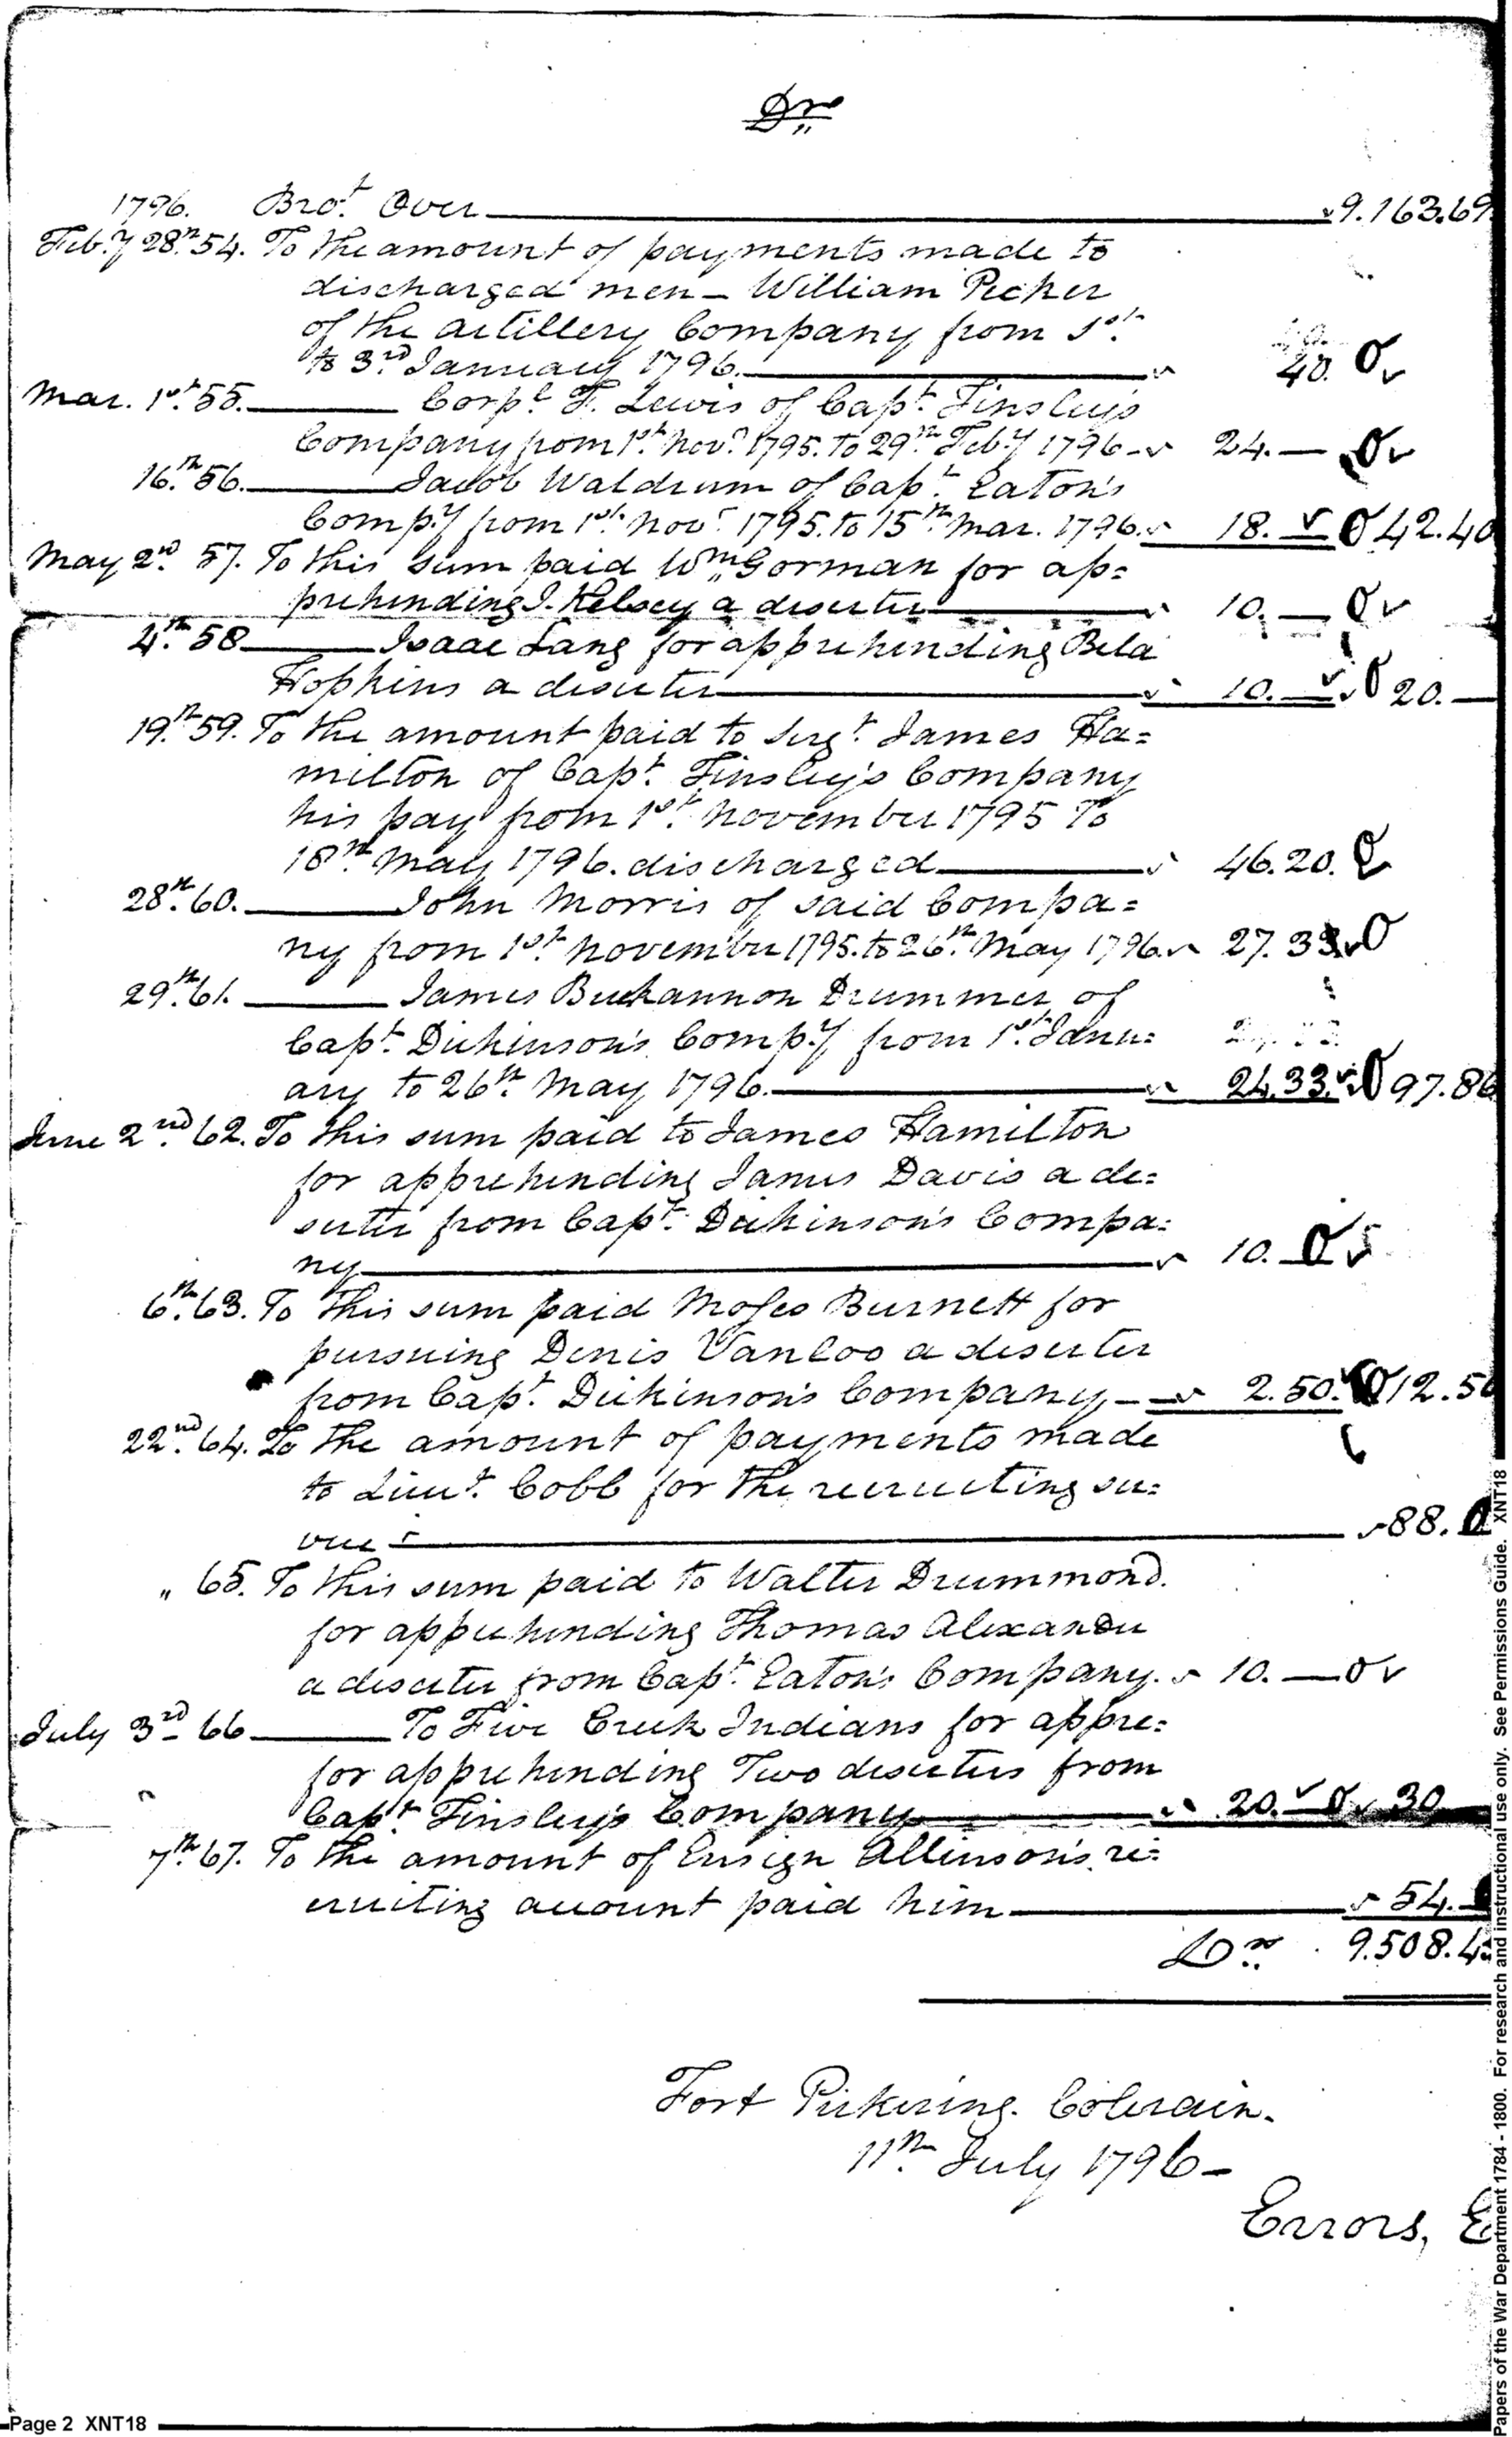 Dr
1796. Brot. Over 9.163.69
Feby 28th. 54. To the amount of payments made to
discharged men - William Pecker
of the artillery Company from 1st.
to 3rd January 1796. 40.
Mar. 1st. 55. Corpl. F. Lewis of Capt. Tinsley's
Company from 1st. Novr. 1795. to 29th Feby 1796 - 24. —
16th. 56. Jacob Waldrum of Capt. Eaton's
Compy from 1st. Novr. 1795. to 15th. Mar. 1796. 18. 42.40
May 2nd. 57. To this sum paid Wm. Gorman for ap=
prehending J. Kelsey a deserter 10. —
4th. 58 Isaac Lang for apprehending Bela
Hopkins a deserter 10. — 20. —
19th. 59. To the amount paid to Sergt. James Ha=
milton of Capt. Tinsley's Company
his pay from 1st. November 1795 To
18th May 1796. discharged 46.20.
28th. 60. John Morris of said Compa=
ny from 1st. November 1795. to 26th. May 1796. 27.33
29th. 61. James Buchannon Drummer of
Capt. Dickinson's Compy from 1st. Janu=
ary to 26th. May 1796. 24.33. 97.86
June 2nd. 62. To this sum paid to James Hamilton
for apprehending James Davis a de=
serter from Capt. Dickinson's Compa=
ny 10.
6th. 63. To this sum paid Moses Burnett for
pursuing Denis Vanloo a deserter
from Capt. Dickinson's Company - 2.50. 12.50
22nd. 64. To the amount of payments made
to Lieut. Cobb for the recruiting ser=
vice 88.
" 65. To this sum paid to Walter Drummond.
for apprehending Thomas Alexander
a deserter from Capt. Eaton's Company. 10. —
July 3rd 66 To Five Creek Indians for appre=
for apprehending Two deserters from
Capt. Tinsley's Company 20. 30
7th. 67. To the amount of Ensign Allinson's re=
cruiting account paid him 54.
Drs. 9.508.4
Fort Pickering. Colerain.
11th. July 1796 -
Errors, E
Page 2 XNT18
Papers of the War Department 1784 - 1800. For research and instructional use only. See Permissions Guide. XNT18